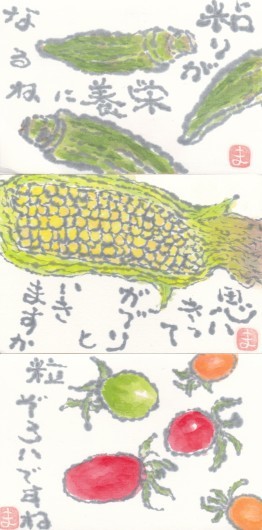 粘りが
栄養に
なるね
ま
思い
きって
がぶりと
いき
ますか
ま
粒
ぞろいですね
ま